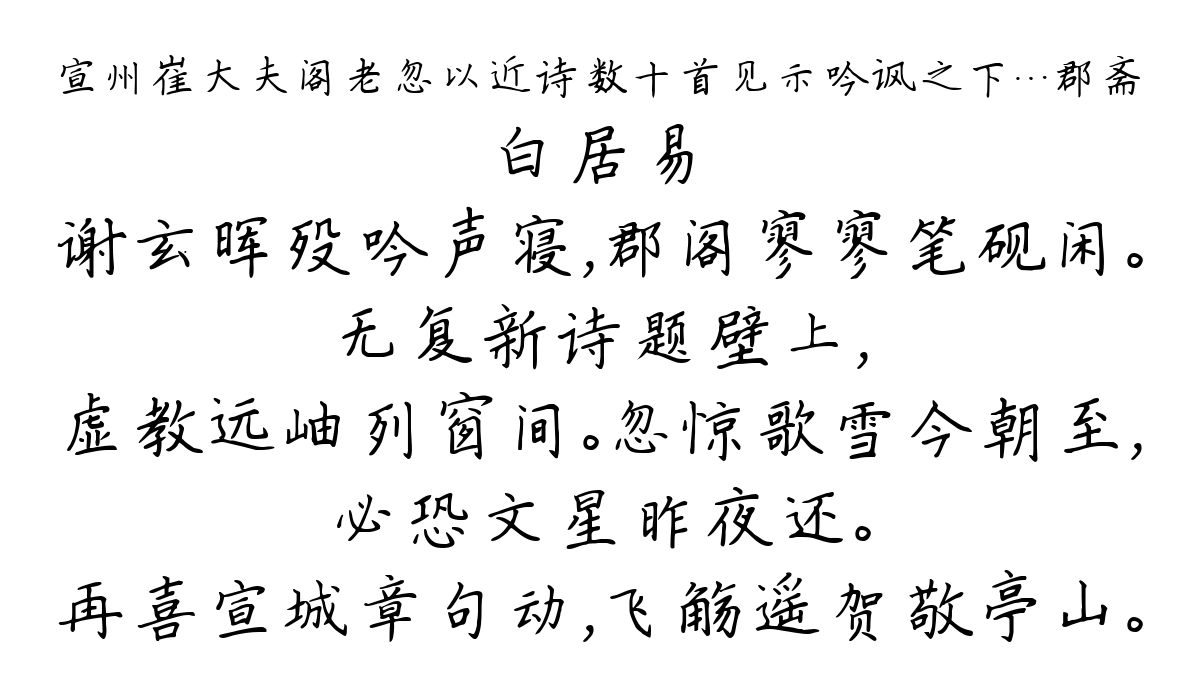 宣州崔大夫阁老忽以近诗数十首见示吟讽之下…郡斋
白居易
谢玄晖殁吟声寝,郡阁寥寥笔砚闲。
无复新诗题壁上,
虚教远岫列窗间。忽惊歌雪今朝至,
必恐文星昨夜还。
再喜宣城章句动,飞觞遥贺敬亭山。